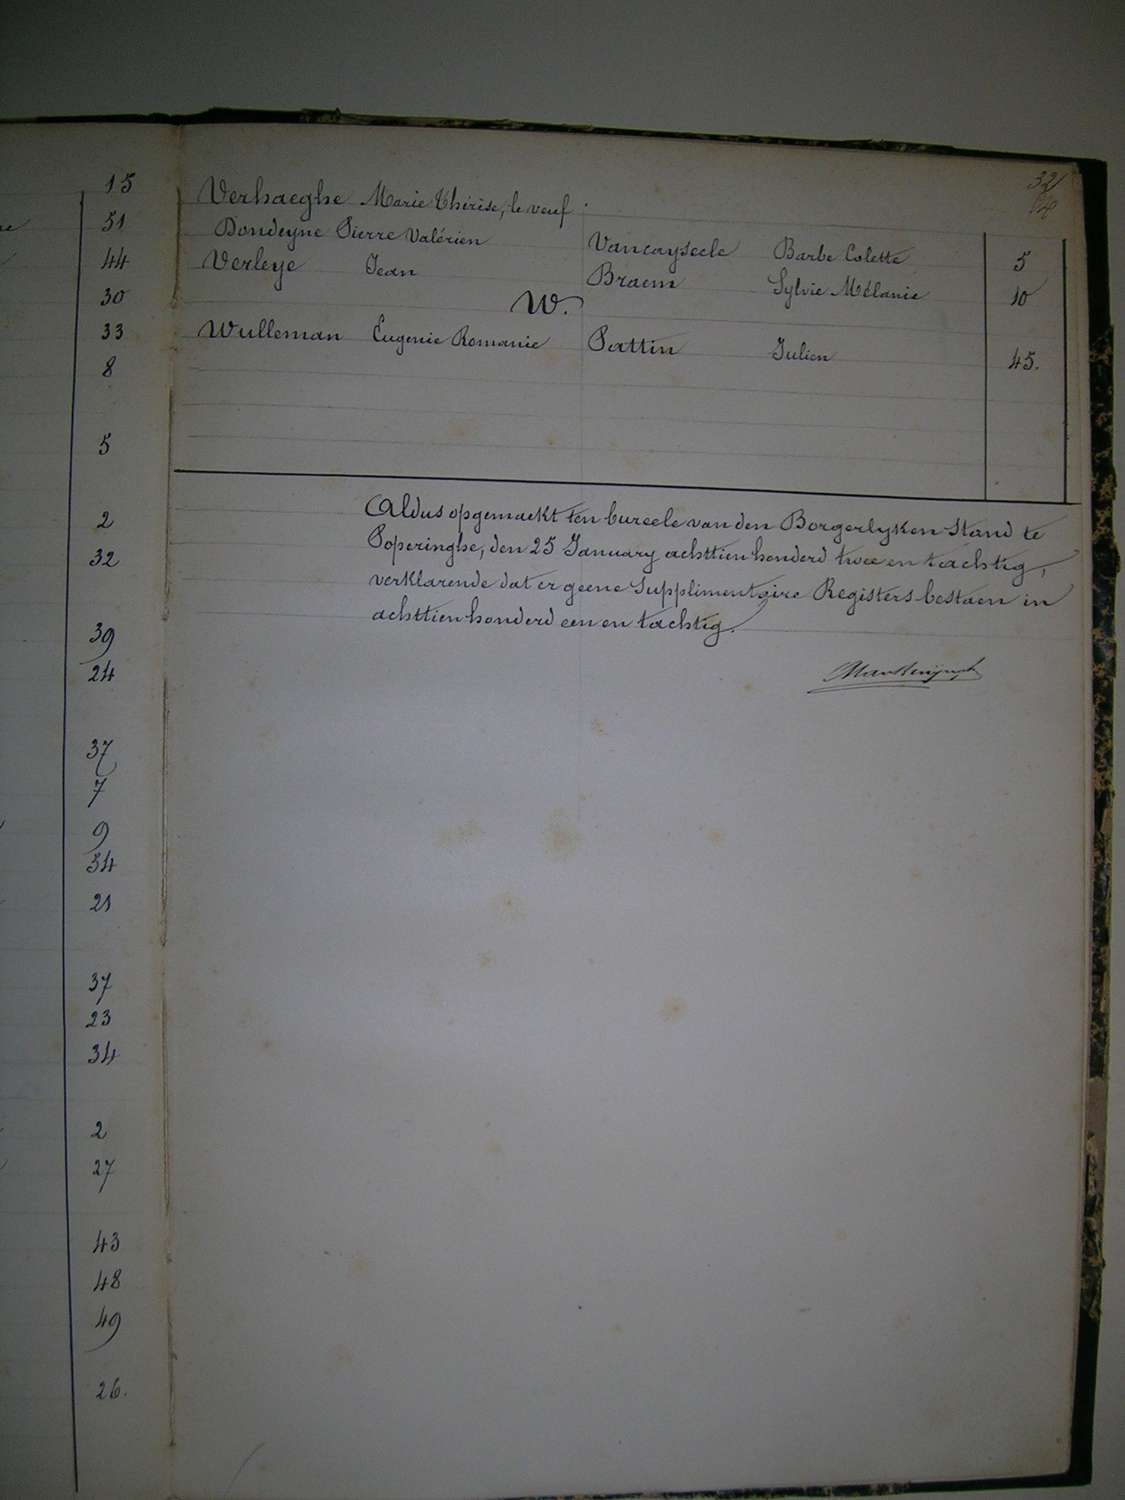 15
51
44
30
33
8
5
2
32
39
24
37
7
9
34
21
37
23
34
2
27
43
48
49
26.
32
Verhaeghe Marie Thérèse, le veuf
Dondeyne Pierre Valérien Vancayseele Barbe Colette 5
Verleye Jean Braem Sylvie Mélanie 10
W.
Wulleman Eugenie Romanie Pattin Julien 45.
Aldus opgemaekt ten bureele van den Borgerlyken Stand te
Poperinghe, den 25 January achttien honderd twee en tachtig,
verklarende dat er geene Supplimentaire Registers bestaen in
achttien honderd een en tachtig.